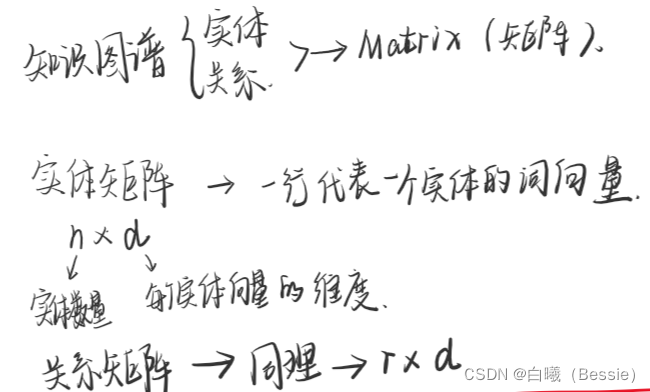 知识图谱 { 实体 关系. > → Matrix (矩阵).
实体矩阵 → 一行代表一个实体的词向量.
n × d
实体数量 每行实体向量的维度.
关系矩阵 → 同理 → r × d
CSDN @白曦（Bessie）